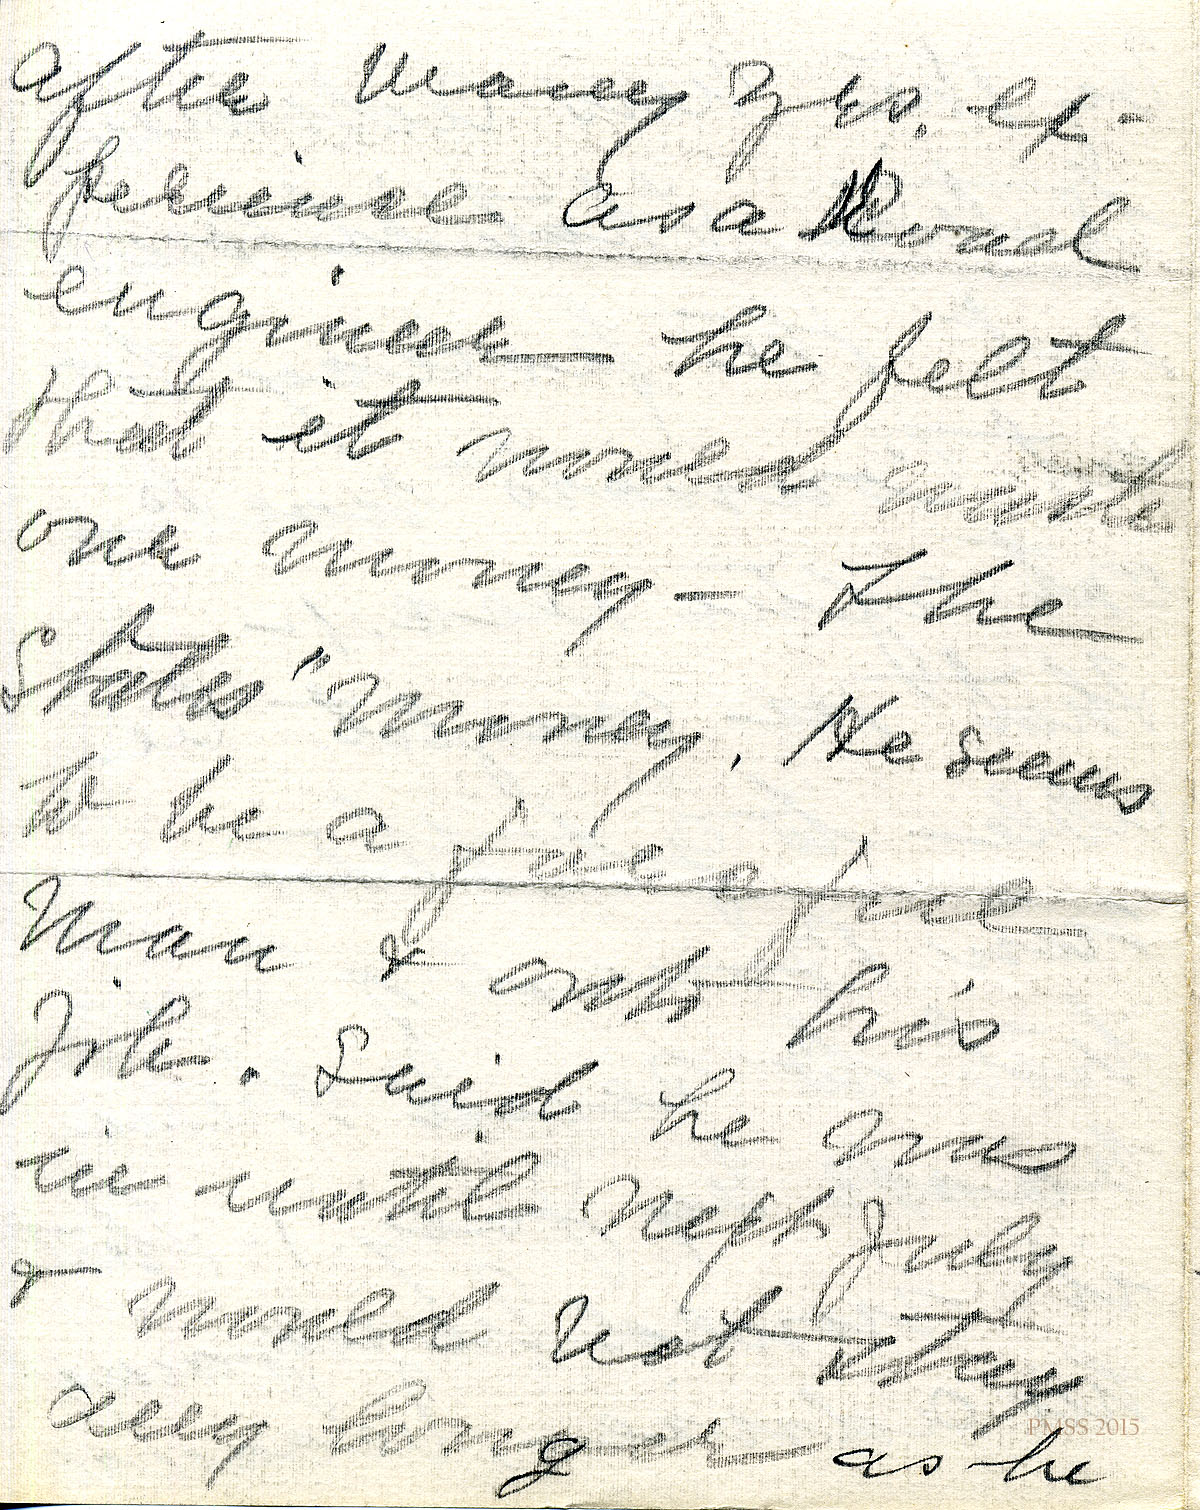 After many yrs. ex-
perience as a Road
engineer he felt
that it would waste
our money — the
States" money. He seems
to be a fine
man & onto his
Job. Said he was
in until next July
& would not stay
any longer as he
PMSS 2015